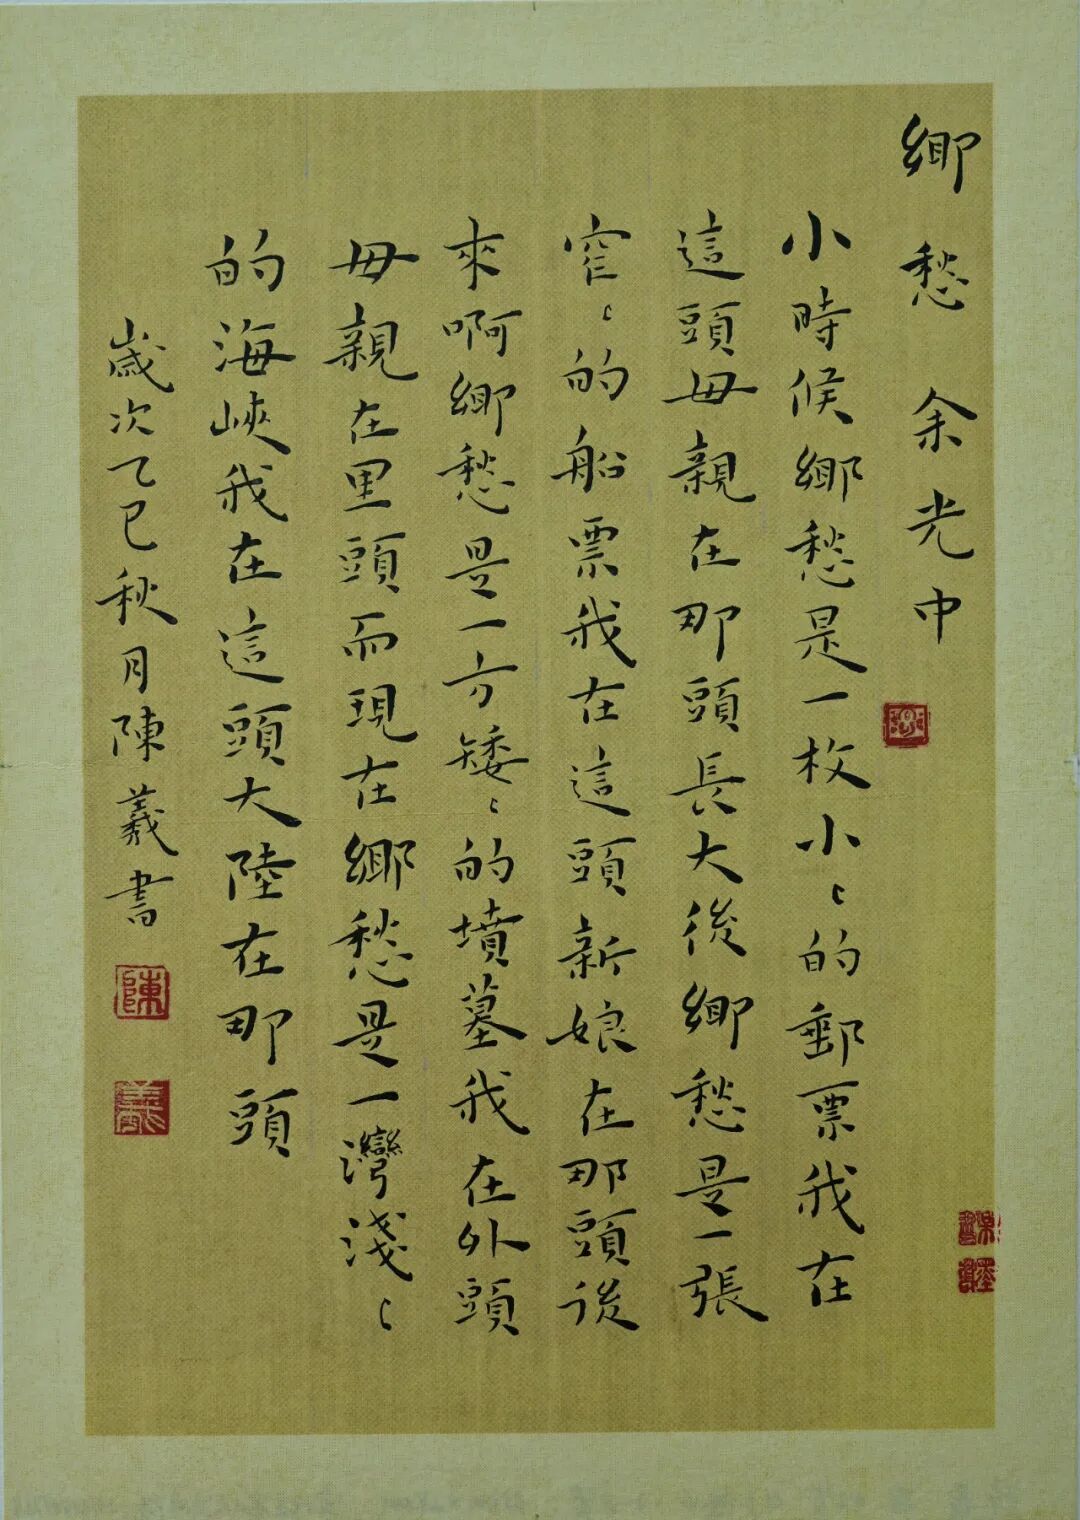 鄉愁 余光中
小時候鄉愁是一枚小〻的郵票我在
這頭母親在那頭長大後鄉愁是一張
窄〻的船票我在這頭新娘在那頭後
來啊鄉愁是一方矮〻的墳墓我在外頭
母親在里頭而現在鄉愁是一灣淺〻
的海峽我在這頭大陸在那頭
歲次乙巳秋月陳義書
陳
義